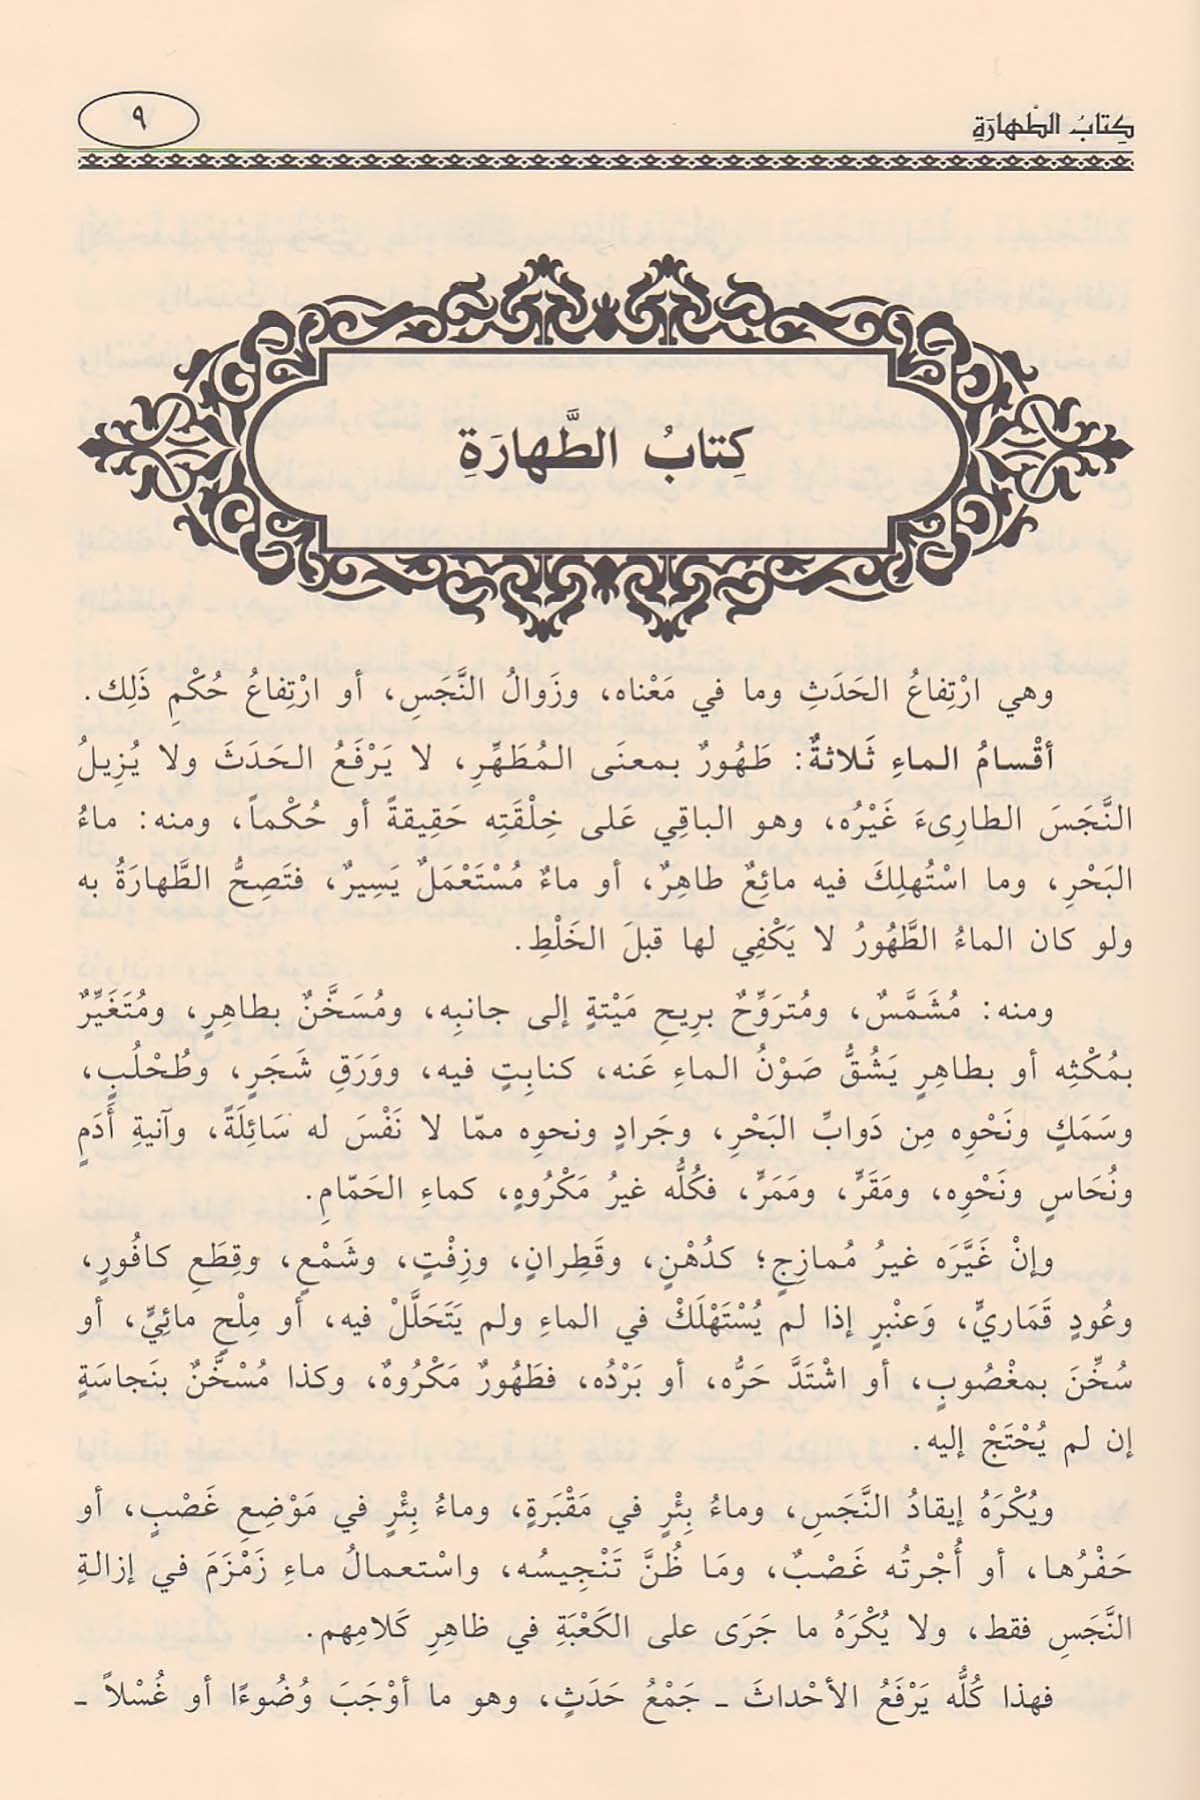 كِتابُ الطَّهارَةِ
٩
كِتابُ الطَّهارَةِ
وهي ارْتِفاعُ الحَدَثِ وما في مَعْناه، وزَوالُ النَّجَسِ، أو ارْتِفاعُ حُكْمِ ذَلِك.
أقْسامُ الماءِ ثَلاثةٌ: طَهُورٌ بمعنَى المُطَهِّرِ، لا يَرْفَعُ الحَدَثَ ولا يُزِيلُ
النَّجَسَ الطارِىءَ غَيْرُه، وهو الباقِي عَلى خِلْقَتِه حَقِيقةً أو حُكْماً، ومنه: ماءُ
البَحْرِ، وما اسْتُهلِكَ فيه مائِعٌ طاهِرٌ، أو ماءٌ مُسْتَعْمَلٌ يَسِيرٌ، فتَصِحُّ الطَّهارَةُ به
ولو كان الماءُ الطَّهُورُ لا يَكْفِي لها قبلَ الخَلْطِ.
ومنه: مُشَمَّسٌ، ومُتروِّحٌ برِيحِ مَيْتةٍ إلى جانبِه، ومُسَخَّنٌ بطاهِرٍ، ومُتَغَيِّرٌ
بمُكْثِه أو بطاهِرٍ يَشُقُّ صَوْنُ الماءِ عَنه، كنابِتٍ فيه، ووَرَقِ شَجَرٍ، وطُحْلُبٍ،
وسَمَكٍ ونَحْوِه مِن دَوابِّ البَحْرِ، وجَرادٍ ونحوِه ممّا لا نَفْسَ له سَائِلَةً، وآنيةِ أَدَمٍ
ونُحَاسٍ ونَحْوِه، ومَقَرٍّ، ومَمَرٍّ، فكُلُّه غيرُ مَكْروُهٍ، كماءِ الحَمّامِ.
وإنْ غَيَّرَه غيرُ مُمازِجٍ؛ كدُهْنٍ، وقَطِرانٍ، وزِفْتٍ، وشَمْعٍ، وقِطَعِ كافُورٍ،
وعُودٍ قَمَاريٍّ، وَعنْبرٍ إذا لم يُسْتَهْلَكْ في الماءِ ولم يَتَحَلَّلْ فيه، أو مِلْحٍ مائِيٍّ، أو
سُخِّنَ بمغْصُوبٍ، أو اشْتَدَّ حَرُّه، أو بَرْدُه، فطَهُورٌ مَكْرُوهٌ، وكذا مُسْخَّنٌ بنَجاسَةٍ
إن لم يُحْتَجْ إليه.
ويُكْرَهُ إيقادُ النَّجَسِ، وماءُ بِئْرٍ في مَقْبَرةٍ، وماءُ بِئْرٍ في مَوْضِعِ غَصْبٍ، أو
حَفْرُها، أو أُجْرتُه غَصْبٌ، ومَا ظُنَّ تَنْجِيسُه، واسْتعمالُ ماءِ زَمْزَمَ في إزالةِ
النَّجَسِ فقط، ولا يُكْرَهُ ما جَرَى على الكَعْبَةِ في ظاهِرِ كَلامِهم.
فهذا كُلُّه يَرْفَعُ الأحْداثَ ـ جَمْعُ حَدَثٍ، وهو ما أوْجَبَ وُضُوءًا أو غُسْلاً ـ